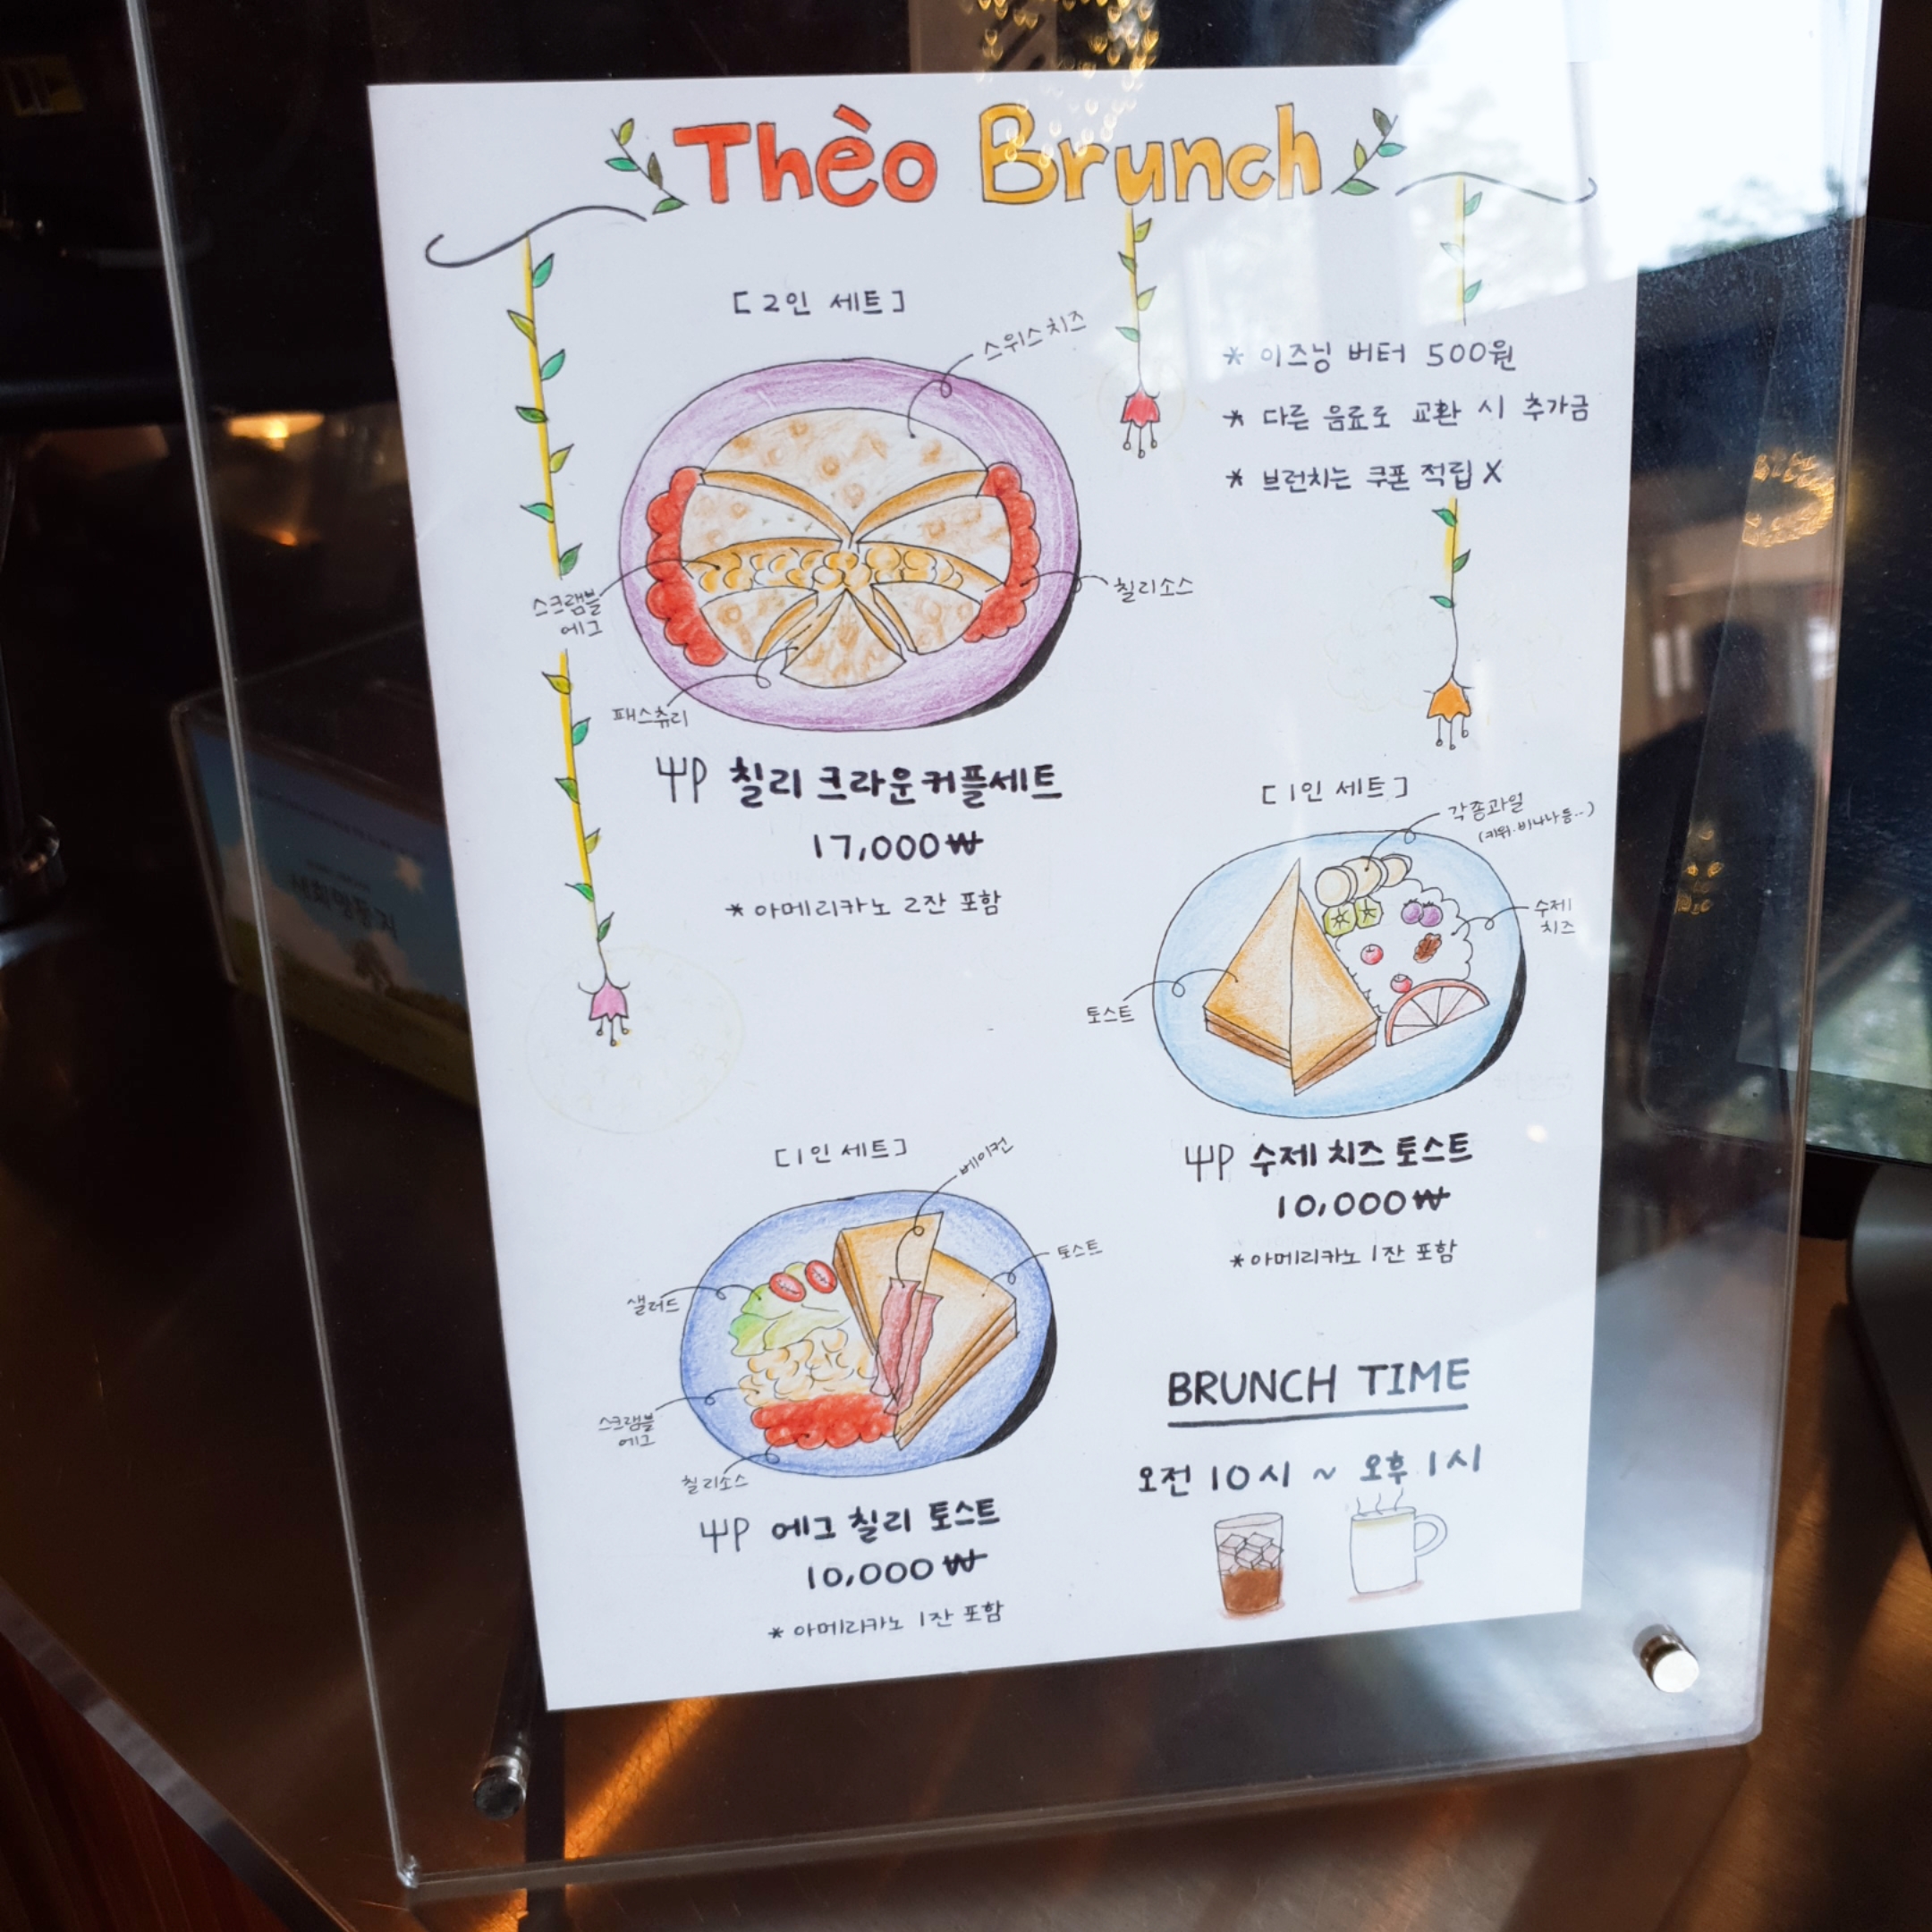 Thèo Brunch
[2인 세트]
스위스치즈
스크램블
에그
칠리소스
패스츄리
칠리 크라운커플세트
17,000₩
* 아메리카노 2잔 포함
* 이즈닝 버터 500원
* 다른 음료로 교환 시 추가금
* 브런치는 쿠폰 적립 X
[1인 세트]
각종과일
(키위·바나나 등..)
수제
치즈
토스트
수제 치즈 토스트
10,000₩
* 아메리카노 1잔 포함
[1인 세트]
베이컨
토스트
샐러드
스크램블
에그
칠리소스
에그 칠리 토스트
10,000₩
* 아메리카노 1잔 포함
BRUNCH TIME
오전 10시 ~ 오후 1시